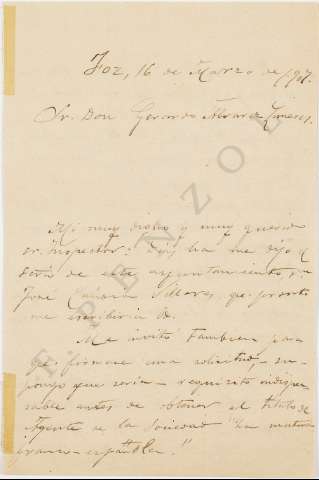 Foz, 16 de Marzo de 1907.
Sr. Don Gerardo Álvarez Limeses.
Mi muy digno y muy querido
sr. Inspector: Dijo ha me dijo y
de este ayuntamiento, Dn
José Villares, qe. pronto
me escribiría V.
Me invitó tambien para
qe. firmase una solicitud,- su-
pongo que sería - requisito indispen
sable antes de obtener el título de
Agente de la Sociedad "La mutua
franco-española."